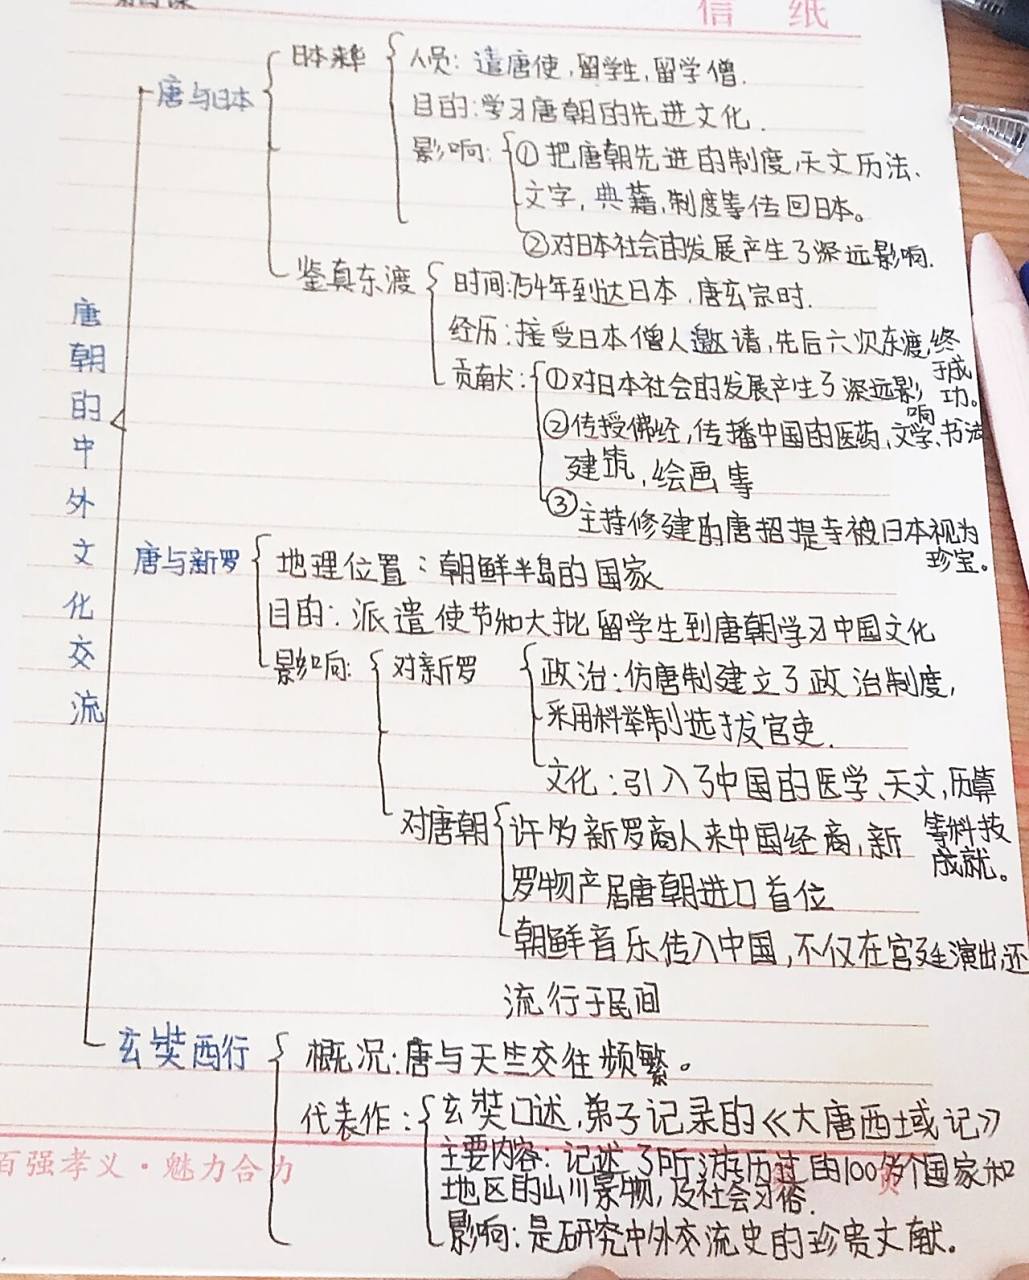 信 纸
唐朝的中外文化交流
唐与日本
日本来华
人员：遣唐使,留学生,留学僧.
目的:学习唐朝的先进文化.
影响:①把唐朝先进的制度,天文历法、
文字,典藉,制度等传回日本。
②对日本社会的发展产生了深远影响.
鉴真东渡
时间:754年到达日本,唐玄宗时.
经历:接受日本僧人邀请,先后六次东渡,终
于成
功。
贡献:①对日本社会的发展产生了深远影
响
②传授佛经,传播中国的医药、文学、书法
建筑,绘画等
③主持修建的唐招提寺被日本视为
珍宝。
唐与新罗
地理位置：朝鲜半岛的国家
目的：派遣使节和大批留学生到唐朝学习中国文化
影响:
对新罗
政治:仿唐制建立了政治制度,
采用科举制选拔官吏.
文化：引入了中国的医学、天文,历算
等科技
成就。
对唐朝
许多新罗商人来中国经商,新
罗物产居唐朝进口首位
朝鲜音乐传入中国,不仅在宫廷演出,还
流行于民间
玄奘西行
概况:唐与天竺交往频繁。
代表作：玄奘口述,弟子记录的《大唐西域记》
主要内容：记述了所游历过的100多个国家和
地区的山川景物,及社会习俗.
影响:是研究中外交流史的珍贵文献。
百强孝义·魅力合力
页